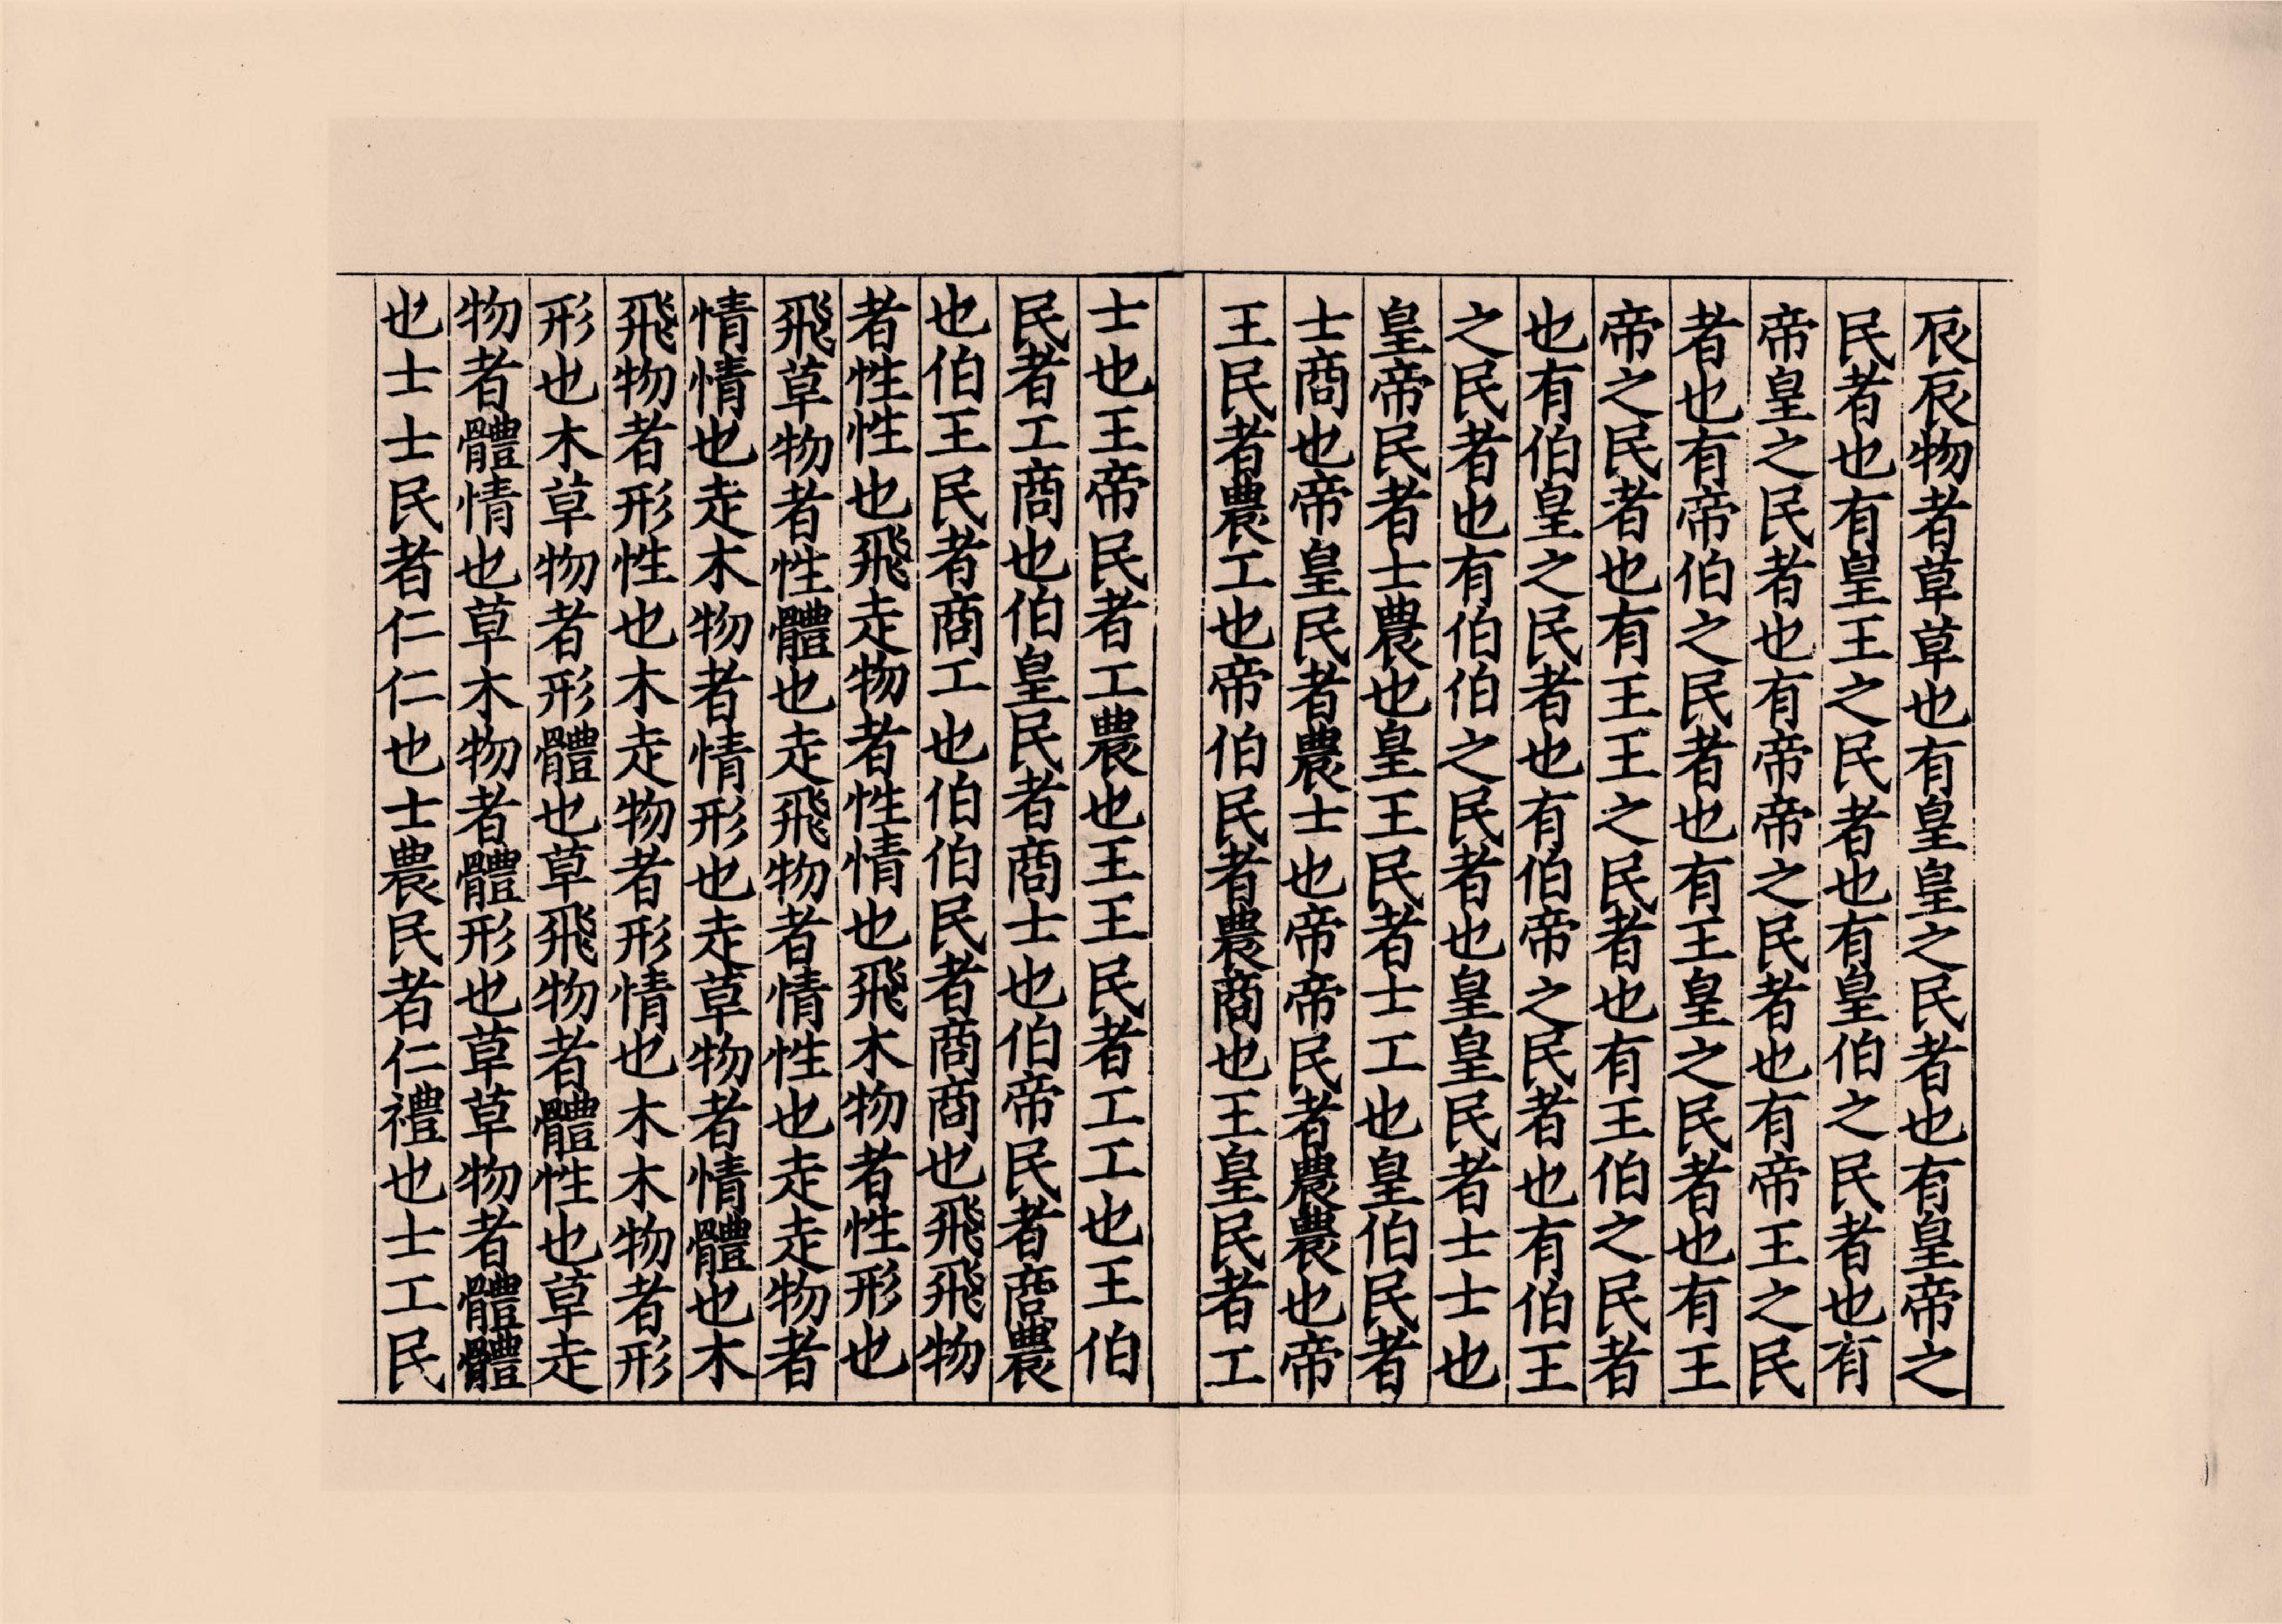 辰辰物者草草也有皇皇之民者也有皇帝之
民者也有皇王之民者也有皇伯之民者也有
帝皇之民者也有帝帝之民者也有帝王之民
者也有帝伯之民者也有王皇之民者也有王
帝之民者也有王王之民者也有王伯之民者
也有伯皇之民者也有伯帝之民者也有伯王
之民者也有伯伯之民者也皇皇民者士士也
皇帝民者士農也皇王民者士工也皇伯民者
士商也帝皇民者農士也帝帝民者農農也帝
王民者農工也帝伯民者農商也王皇民者工
士也王帝民者工農也王王民者工工也王伯
民者工商也伯皇民者商士也伯帝民者商農
也伯王民者商工也伯伯民者商商也飛飛物
者性性也飛走物者性情也飛木物者性形也
飛草物者性體也走飛物者情性也走走物者
情情也走木物者情形也走草物者情體也木
飛物者形性也木走物者形情也木木物者形
形也木草物者形體也草飛物者體性也草走
物者體情也草木物者體形也草草物者體體
也士士民者仁仁也士農民者仁禮也士工民